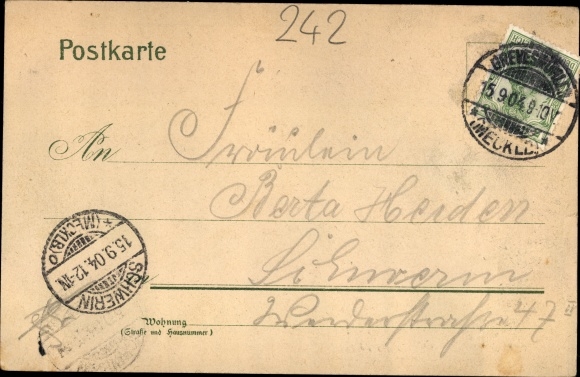 242
Postkarte
GREVESMÜHLEN
15.9.04.9-10V.
*(MECKLB.)*
An Fräulein
Berta Heiden
SCHWERIN
15.9.04.12-1N
*(MECKLB)
Schwerin
Werderstraße 47
Wohnung
(Straße und Hausnummer)